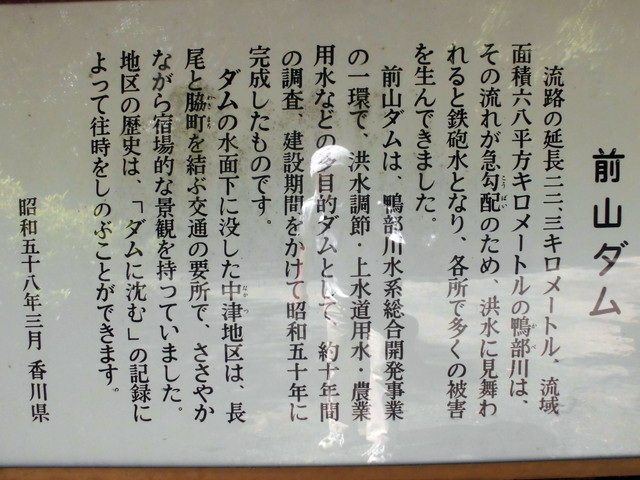 前山ダム
流路の延長二二、三キロメートル、流域
面積六八平方キロメートルの鴨部川は、
その流れが急勾配のため、洪水に見舞わ
れると鉄砲水となり、各所で多くの被害
を生んできました。
前山ダムは、鴨部川水系総合開発事業
の一環で、洪水調節・上水道用水・農業
用水などの多目的ダムとして、約十年間
の調査、建設期間をかけて昭和五十年に
完成したものです。
ダムの水面下に没した中津地区は、長
尾と脇町を結ぶ交通の要所で、ささやか
ながら宿場的な景観を持つていました。
地区の歴史は、「ダムに沈む」の記録に
よって往時をしのぶことができます。
昭和五十八年三月 香川県